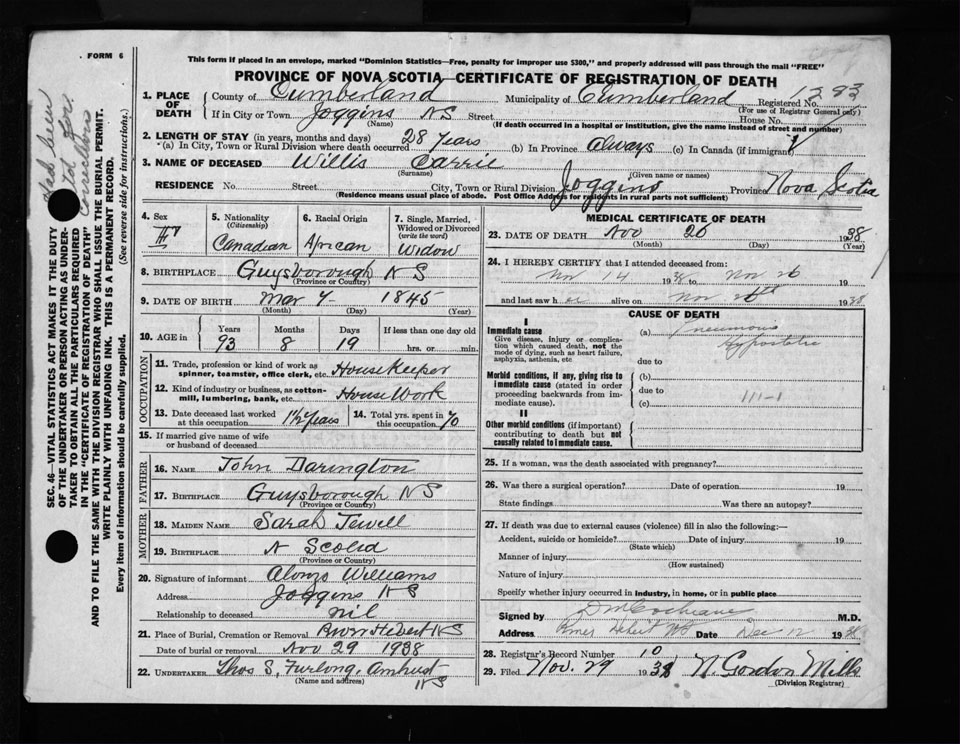 FORM 6
This form if placed in an envelope, marked "Dominion Statistics—Free, penalty for improper use $300," and properly addressed will pass through the mail "FREE"
PROVINCE OF NOVA SCOTIA—CERTIFICATE OF REGISTRATION OF DEATH
1. PLACE OF DEATH County of Cumberland Municipality of Cumberland Registered No. 1283
(For use of Registrar General only)
If in City or Town Joggins NS Street House No.
(Name) (If death occurred in a hospital or institution, give the name instead of street and number)
2. LENGTH OF STAY (in years, months and days)
(a) In City, Town or Rural Division where death occurred 28 Years (b) In Province Always (c) In Canada (if immigrant)
3. NAME OF DECEASED Willis Carrie
(Surname) (Given name or names)
RESIDENCE No. Street City, Town or Rural Division Joggins Province Nova Scotia
(Residence means usual place of abode. Post Office Address for residents in rural parts not sufficient)
SEC. 46—VITAL STATISTICS ACT MAKES IT THE DUTY
OF THE UNDERTAKER OR PERSON ACTING AS UNDER-
TAKER TO OBTAIN ALL THE PARTICULARS REQUIRED
IN THE "CERTIFICATE OF REGISTRATION OF DEATH"
AND TO FILE THE SAME WITH THE DIVISION REGISTRAR WHO SHALL ISSUE THE BURIAL PERMIT.
WRITE PLAINLY WITH UNFADING INK. THIS IS A PERMANENT RECORD.
Every item of information should be carefully supplied. (See reverse side for instructions.)
4. Sex F
5. Nationality (Citizenship) Canadian
6. Racial Origin African
7. Single, Married, Widowed or Divorced (write the word) Widow
8. BIRTHPLACE Guysborough NS
(Province or Country)
9. DATE OF BIRTH Mar 7 1845
(Month) (Day) (Year)
10. AGE in Years 93 Months 8 Days 19 If less than one day old hrs. or min.
OCCUPATION
11. Trade, profession or kind of work as spinner, teamster, office clerk, etc. HouseKeeper
12. Kind of industry or business, as cotton-mill, lumbering, bank, etc. House Work
13. Date deceased last worked at this occupation 1½ years
14. Total yrs. spent in this occupation 70
15. If married give name of wife or husband of deceased
FATHER
16. NAME John Darington
17. BIRTHPLACE Guysborough NS
(Province or Country)
MOTHER
18. MAIDEN NAME Sarah Jewell
19. BIRTHPLACE N Scotia
(Province or Country)
20. Signature of informant Alonzo Williams
Address Joggins NS
Relationship to deceased nil
21. Place of Burial, Cremation or Removal River Hebert NS
Date of burial or removal Nov 29 1938
22. UNDERTAKER Thos S. Furlong, Amherst NS
(Name and address)
MEDICAL CERTIFICATE OF DEATH
23. DATE OF DEATH Nov 26 1938
(Month) (Day) (Year)
24. I HEREBY CERTIFY that I attended deceased from:
Nov 14 1938 Nov 26 19
and last saw her alive on Nov 26th 1938
CAUSE OF DEATH
I
Immediate cause
Give disease, injury or complication which caused death, not the mode of dying, such as heart failure, asphyxia, asthenia, etc
(a) Pneumonia
Hypostatic
due to
Morbid conditions, if any, giving rise to immediate cause (stated in order proceeding backwards from immediate cause).
(b)
due to
(c) 111-1
II
Other morbid conditions (if important) contributing to death but not causally related to immediate cause.
25. If a woman, was the death associated with pregnancy?
26. Was there a surgical operation? Date of operation 19
State findings Was there an autopsy?
27. If death was due to external causes (violence) fill in also the following:
Accident, suicide or homicide? Date of injury 19
(State which)
Manner of injury
(How sustained)
Nature of injury
Specify whether injury occurred in industry, in home, or in public place
Signed by D M Cochrane M.D.
Address River Hebert NS Date Dec 12 1938
28. Registrar's Record Number 10
29. Filed Nov. 29 1938 N. Gordon Mills
(Division Registrar)